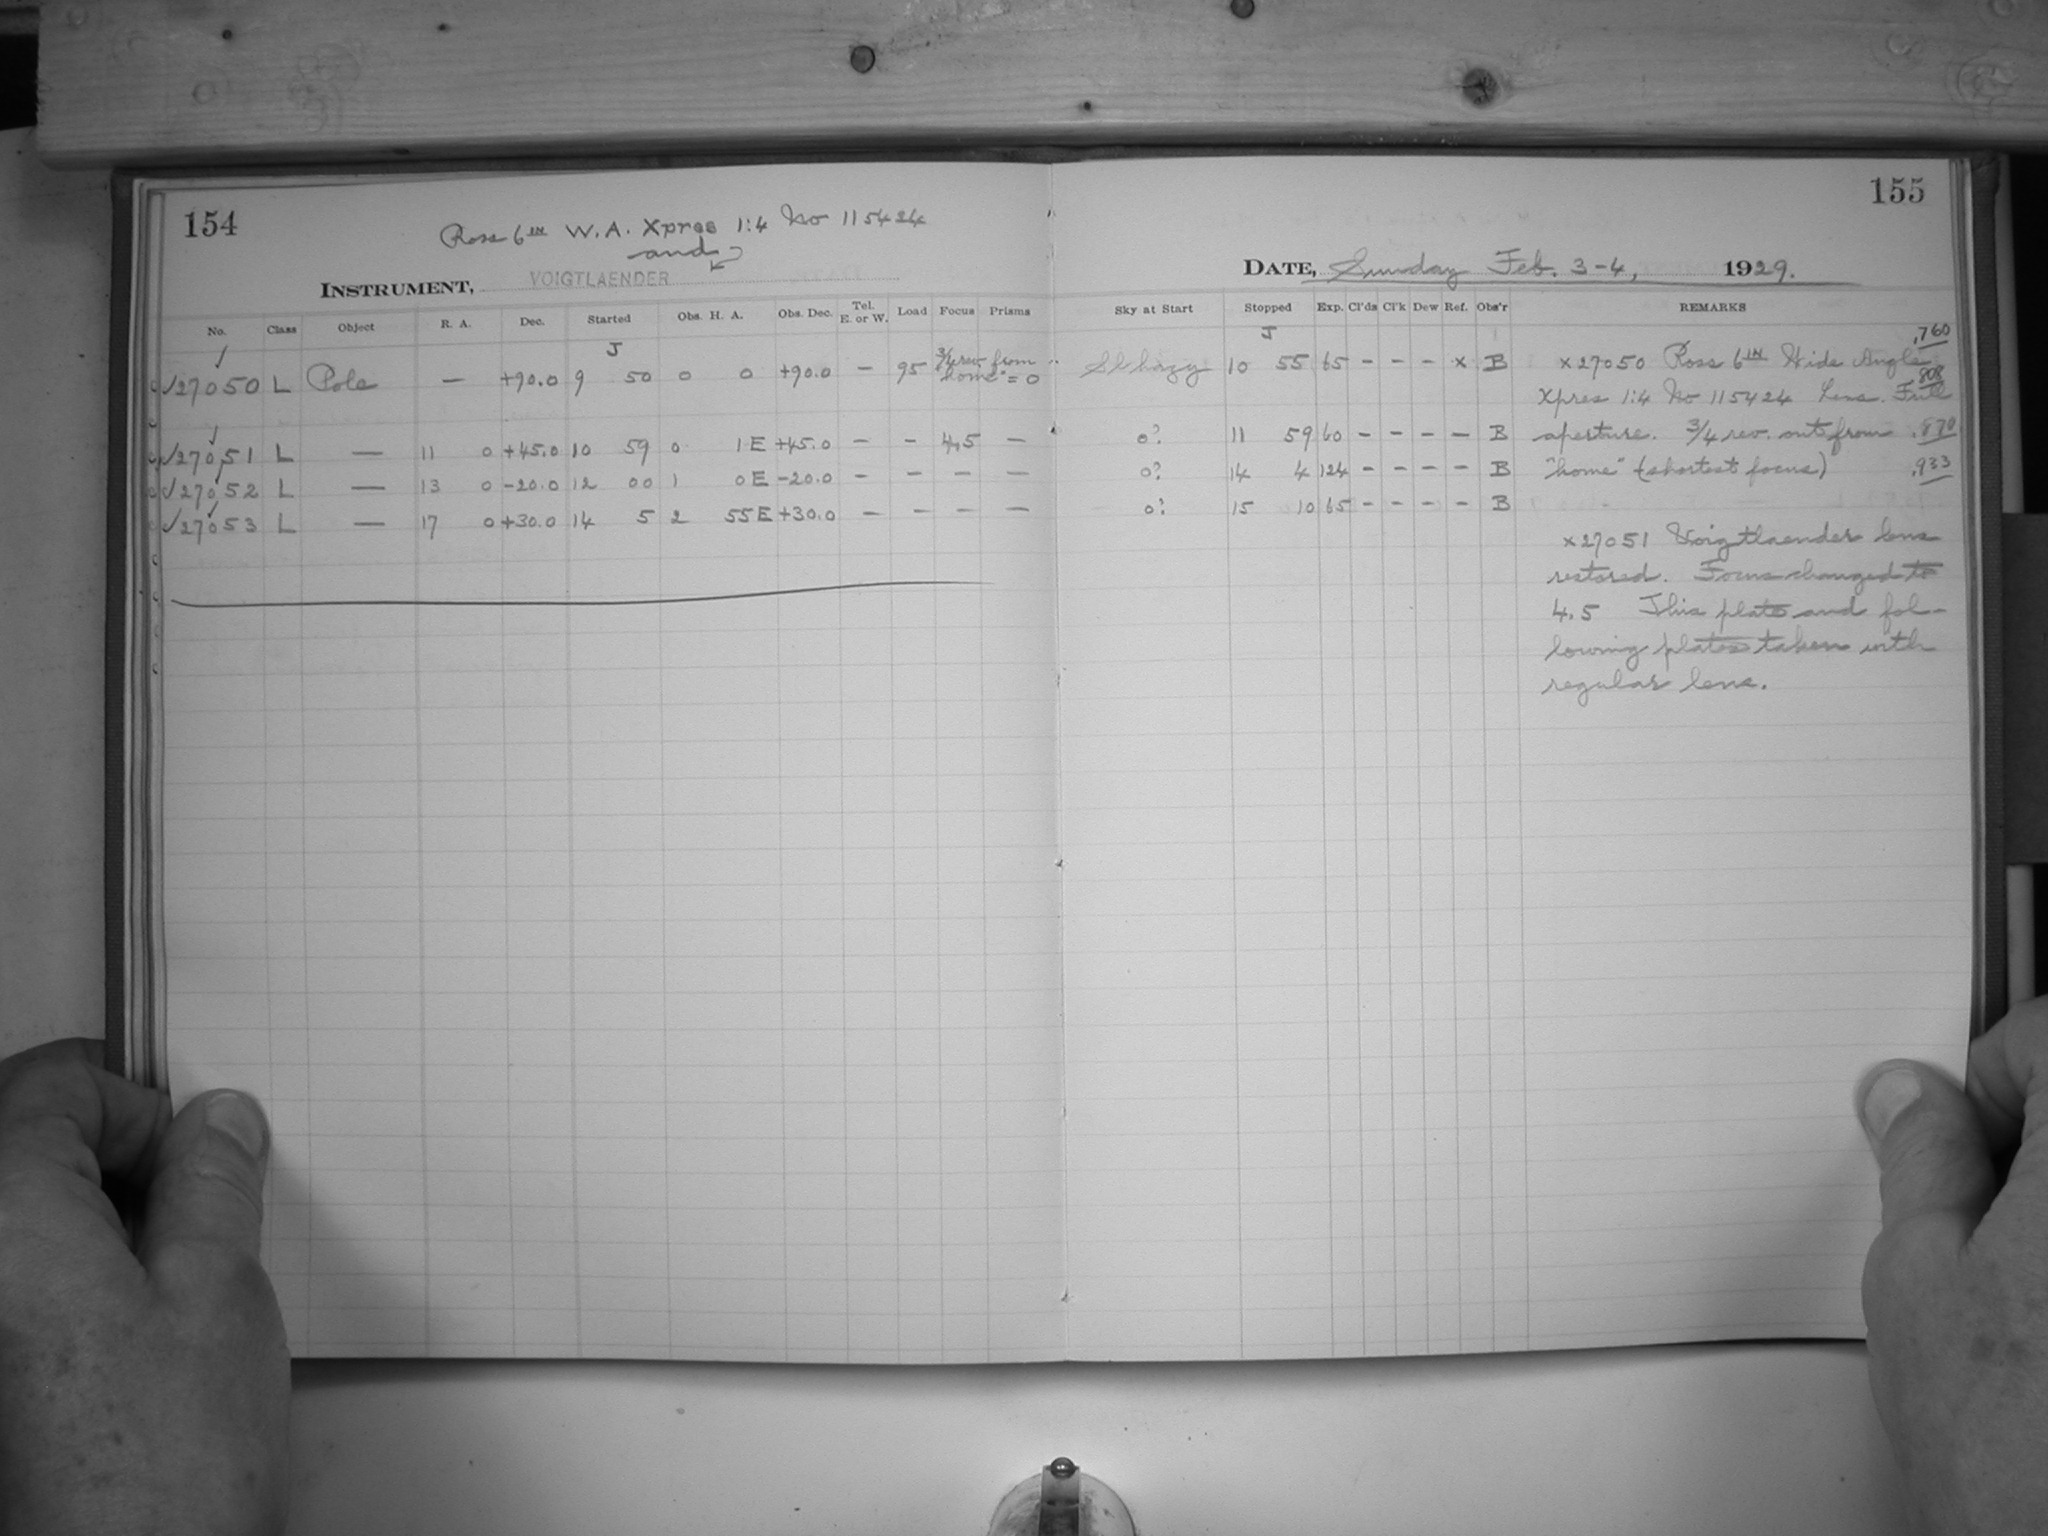 154
Ross 6IN W.A. Xpres 1:4 No 115424
and
INSTRUMENT, VOIGTLAENDER
No. Class Object R. A. Dec. Started Obs. H. A. Obs. Dec. Tel. E. or W. Load Focus Prisms
J
✓27050 L Pole — +90.0 9 50 0 0 +90.0 — 95 3/4 rev. from "home" = 0
✓27051 L — 11 0 +45.0 10 59 0 1 E +45.0 — - 4.5 —
✓27052 L — 13 0 -20.0 12 00 1 0 E -20.0 — - — —
✓27053 L — 17 0 +30.0 14 5 2 55 E +30.0 — - — —
155
DATE, Sunday Feb. 3-4, 1929.
Sky at Start Stopped Exp. Cl'ds Cl'k Dew Ref. Obs'r REMARKS
J
Sl hazy 10 55 65 - - - x B
0? 11 59 60 - - - - B
0? 14 4 124 - - - - B
0? 15 10 65 - - - - B
.760
x27050 Ross 6IN Wide Angle
.808
Xpres 1:4 No 115424 Lens. Full
aperture. 3/4 rev. out from .870
"home" (shortest focus) .933
x27051 Voigtlaender lens
restored. Focus changed to
4.5 This plate and fol-
lowing plates taken with
regular lens.